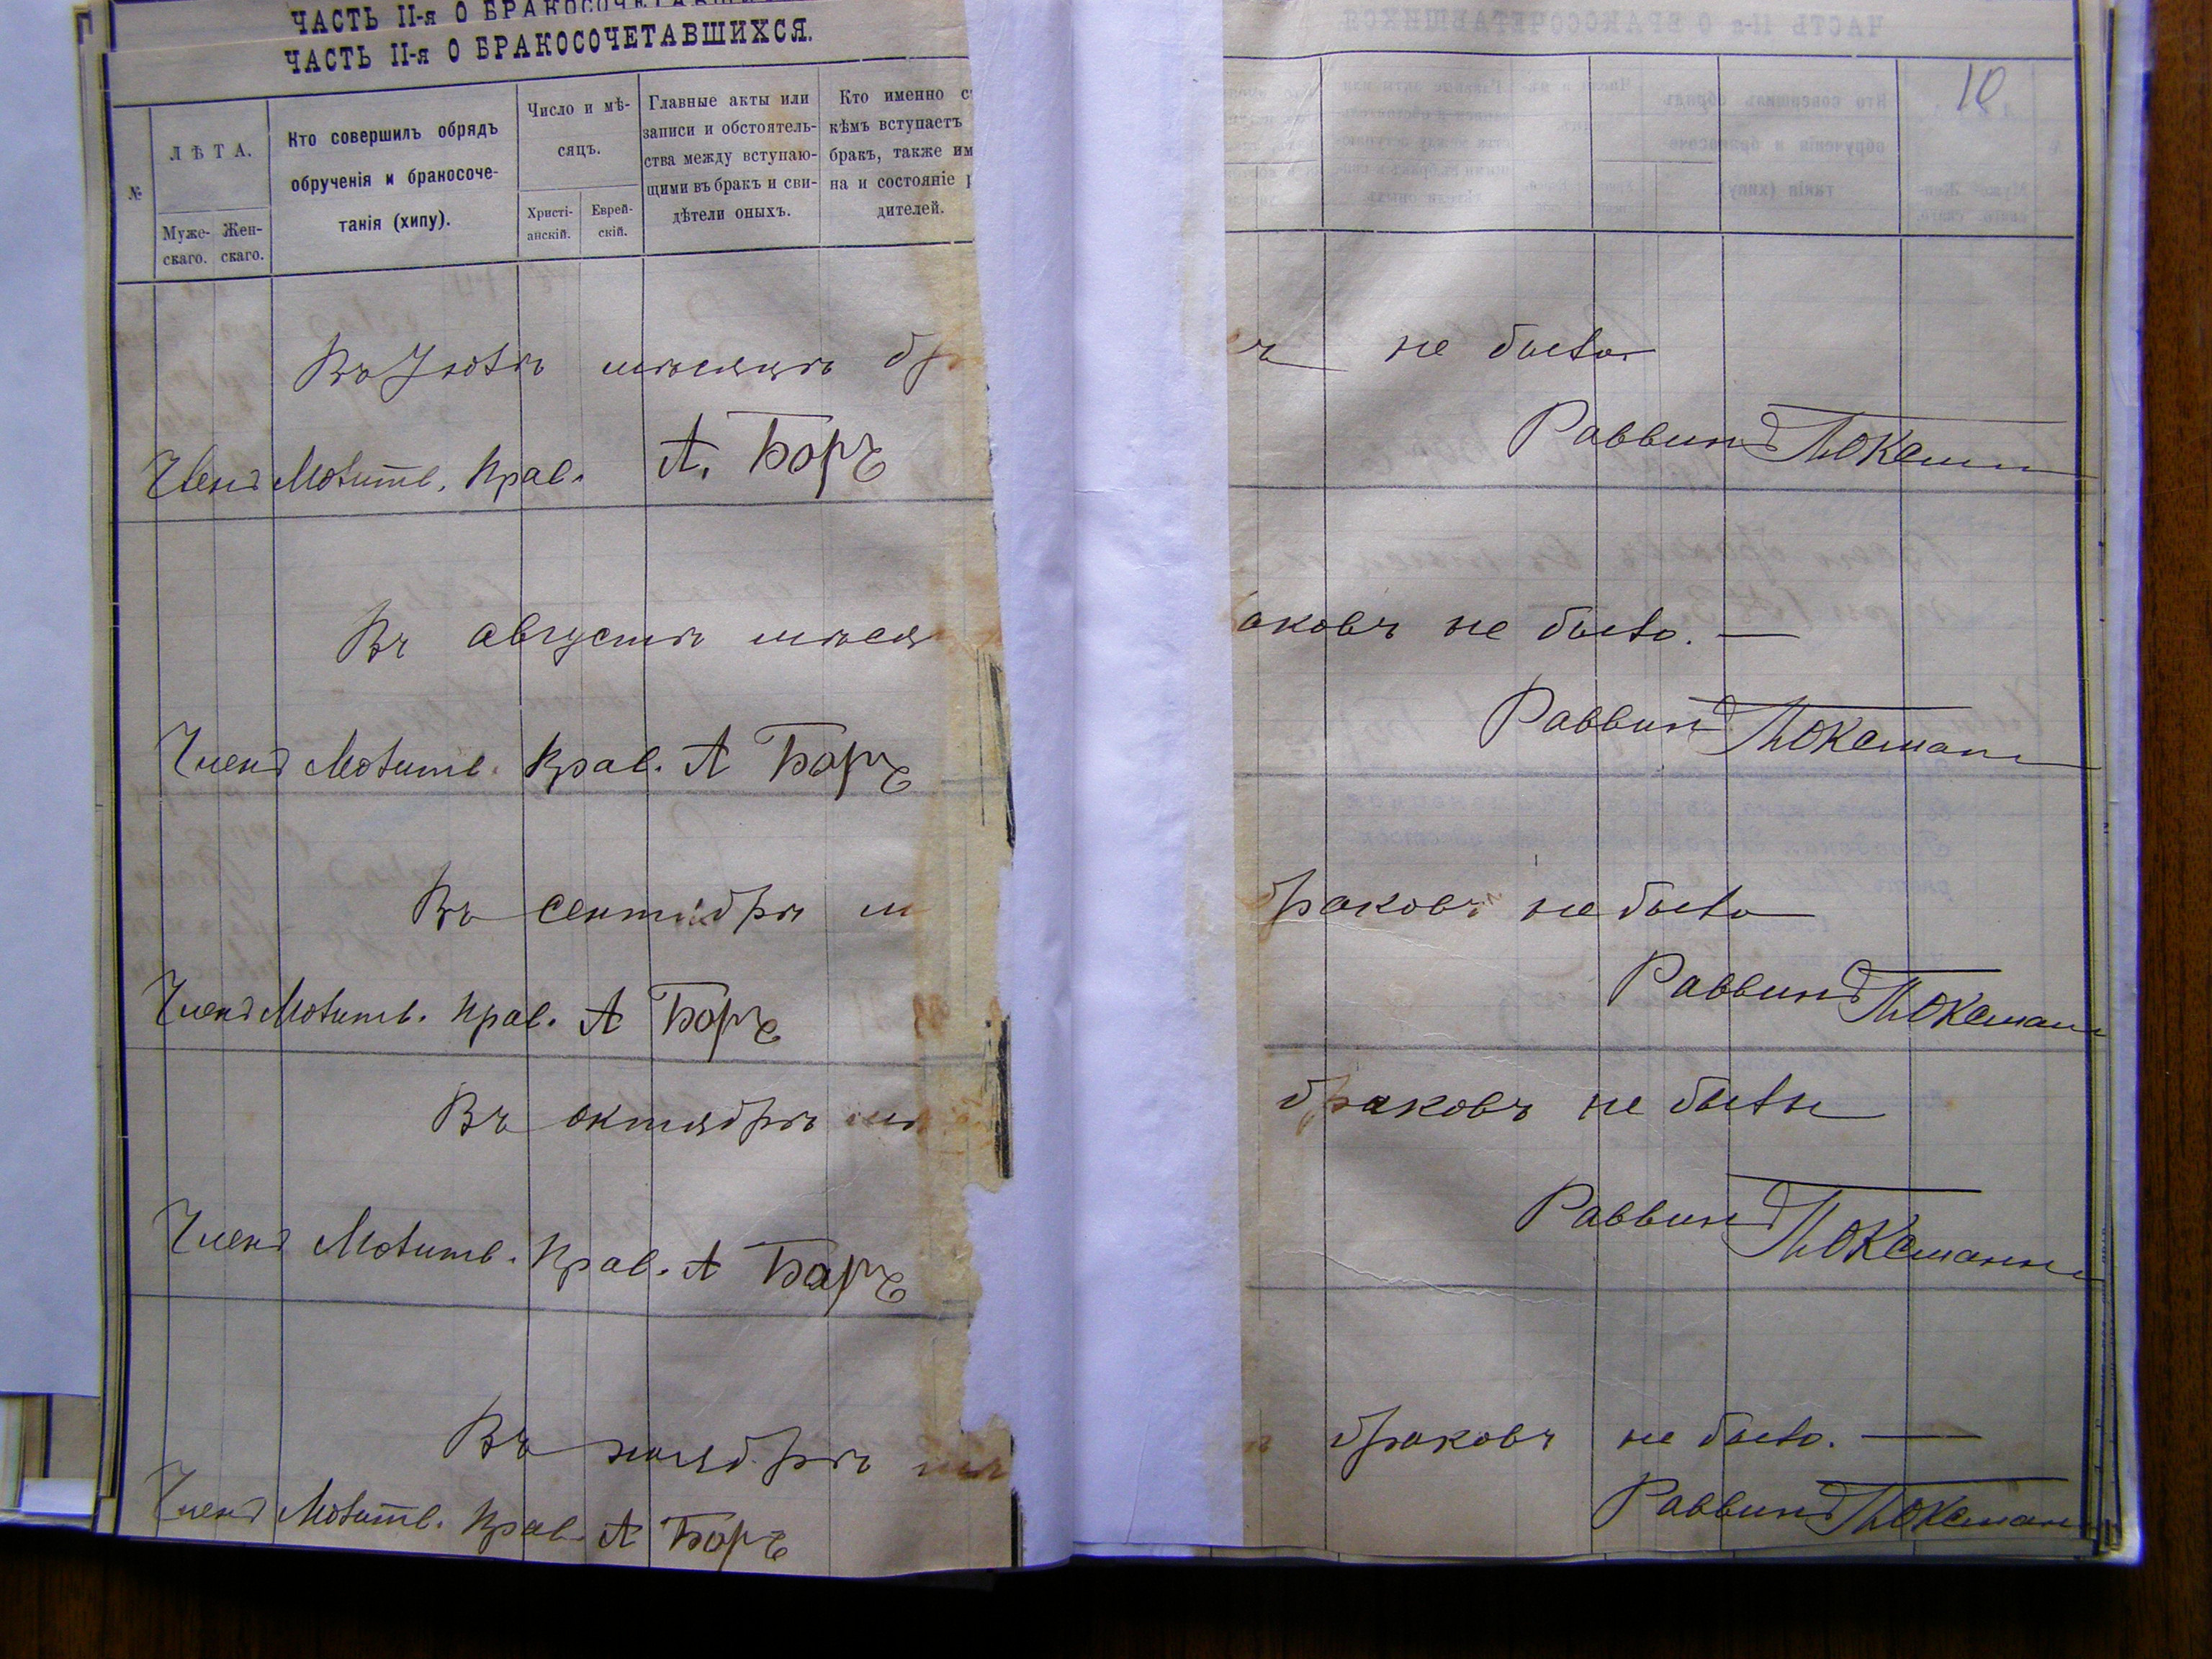 ЧАСТЬ II-я О БРАКОСОЧЕТАВШИХСЯ.
№
ЛѢТА.
Муже-
скаго.
Жен-
скаго.
Кто совершилъ обрядъ
обрученія и бракосоче-
танія (хипу).
Число и мѣ-
сяцъ.
Христі-
анскій.
Еврей-
скій.
Главные акты или
записи и обстоятель-
ства между вступаю-
щими въ бракъ и сви-
дѣтели оныхъ.
Кто именно с
кѣмъ вступаетъ
бракъ, также им
на и состояніе р
дителей.
10
Въ Іюлѣ мѣсяцѣ бр ъ не было
Раввинъ
Членъ Молитв. Прав. А. Боръ
Въ августѣ мѣся аковъ не было. —
Раввинъ
Членъ Молитв. Прав. А Боръ
Въ сентябрѣ м браковъ не было
Раввинъ
Членъ Молитв. Прав. А Боръ
Въ октябрѣ мѣ браковъ не было
Раввинъ
Членъ Молитв. Прав. А Боръ
Въ ноябрѣ мѣ браковъ не было. —
Раввинъ
Членъ Молитв. Прав. А Боръ